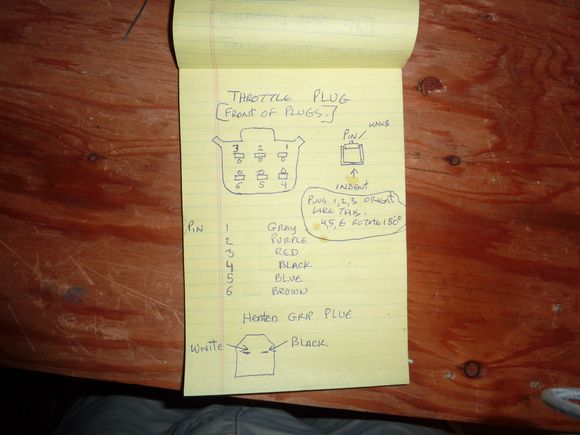 THROTTLE PLUG
[FRONT OF PLUGS.]
PIN / KNUB
3 2 1
6 5 4
INDENT
PINS 1,2,3 ORIENT
LIKE THIS.
4,5,6 ROTATE 180°
PIN 1 GRAY
2 PURPLE
3 RED
4 BLACK
5 BLUE
6 BROWN
HEATED GRIP PLUG
WHITE BLACK